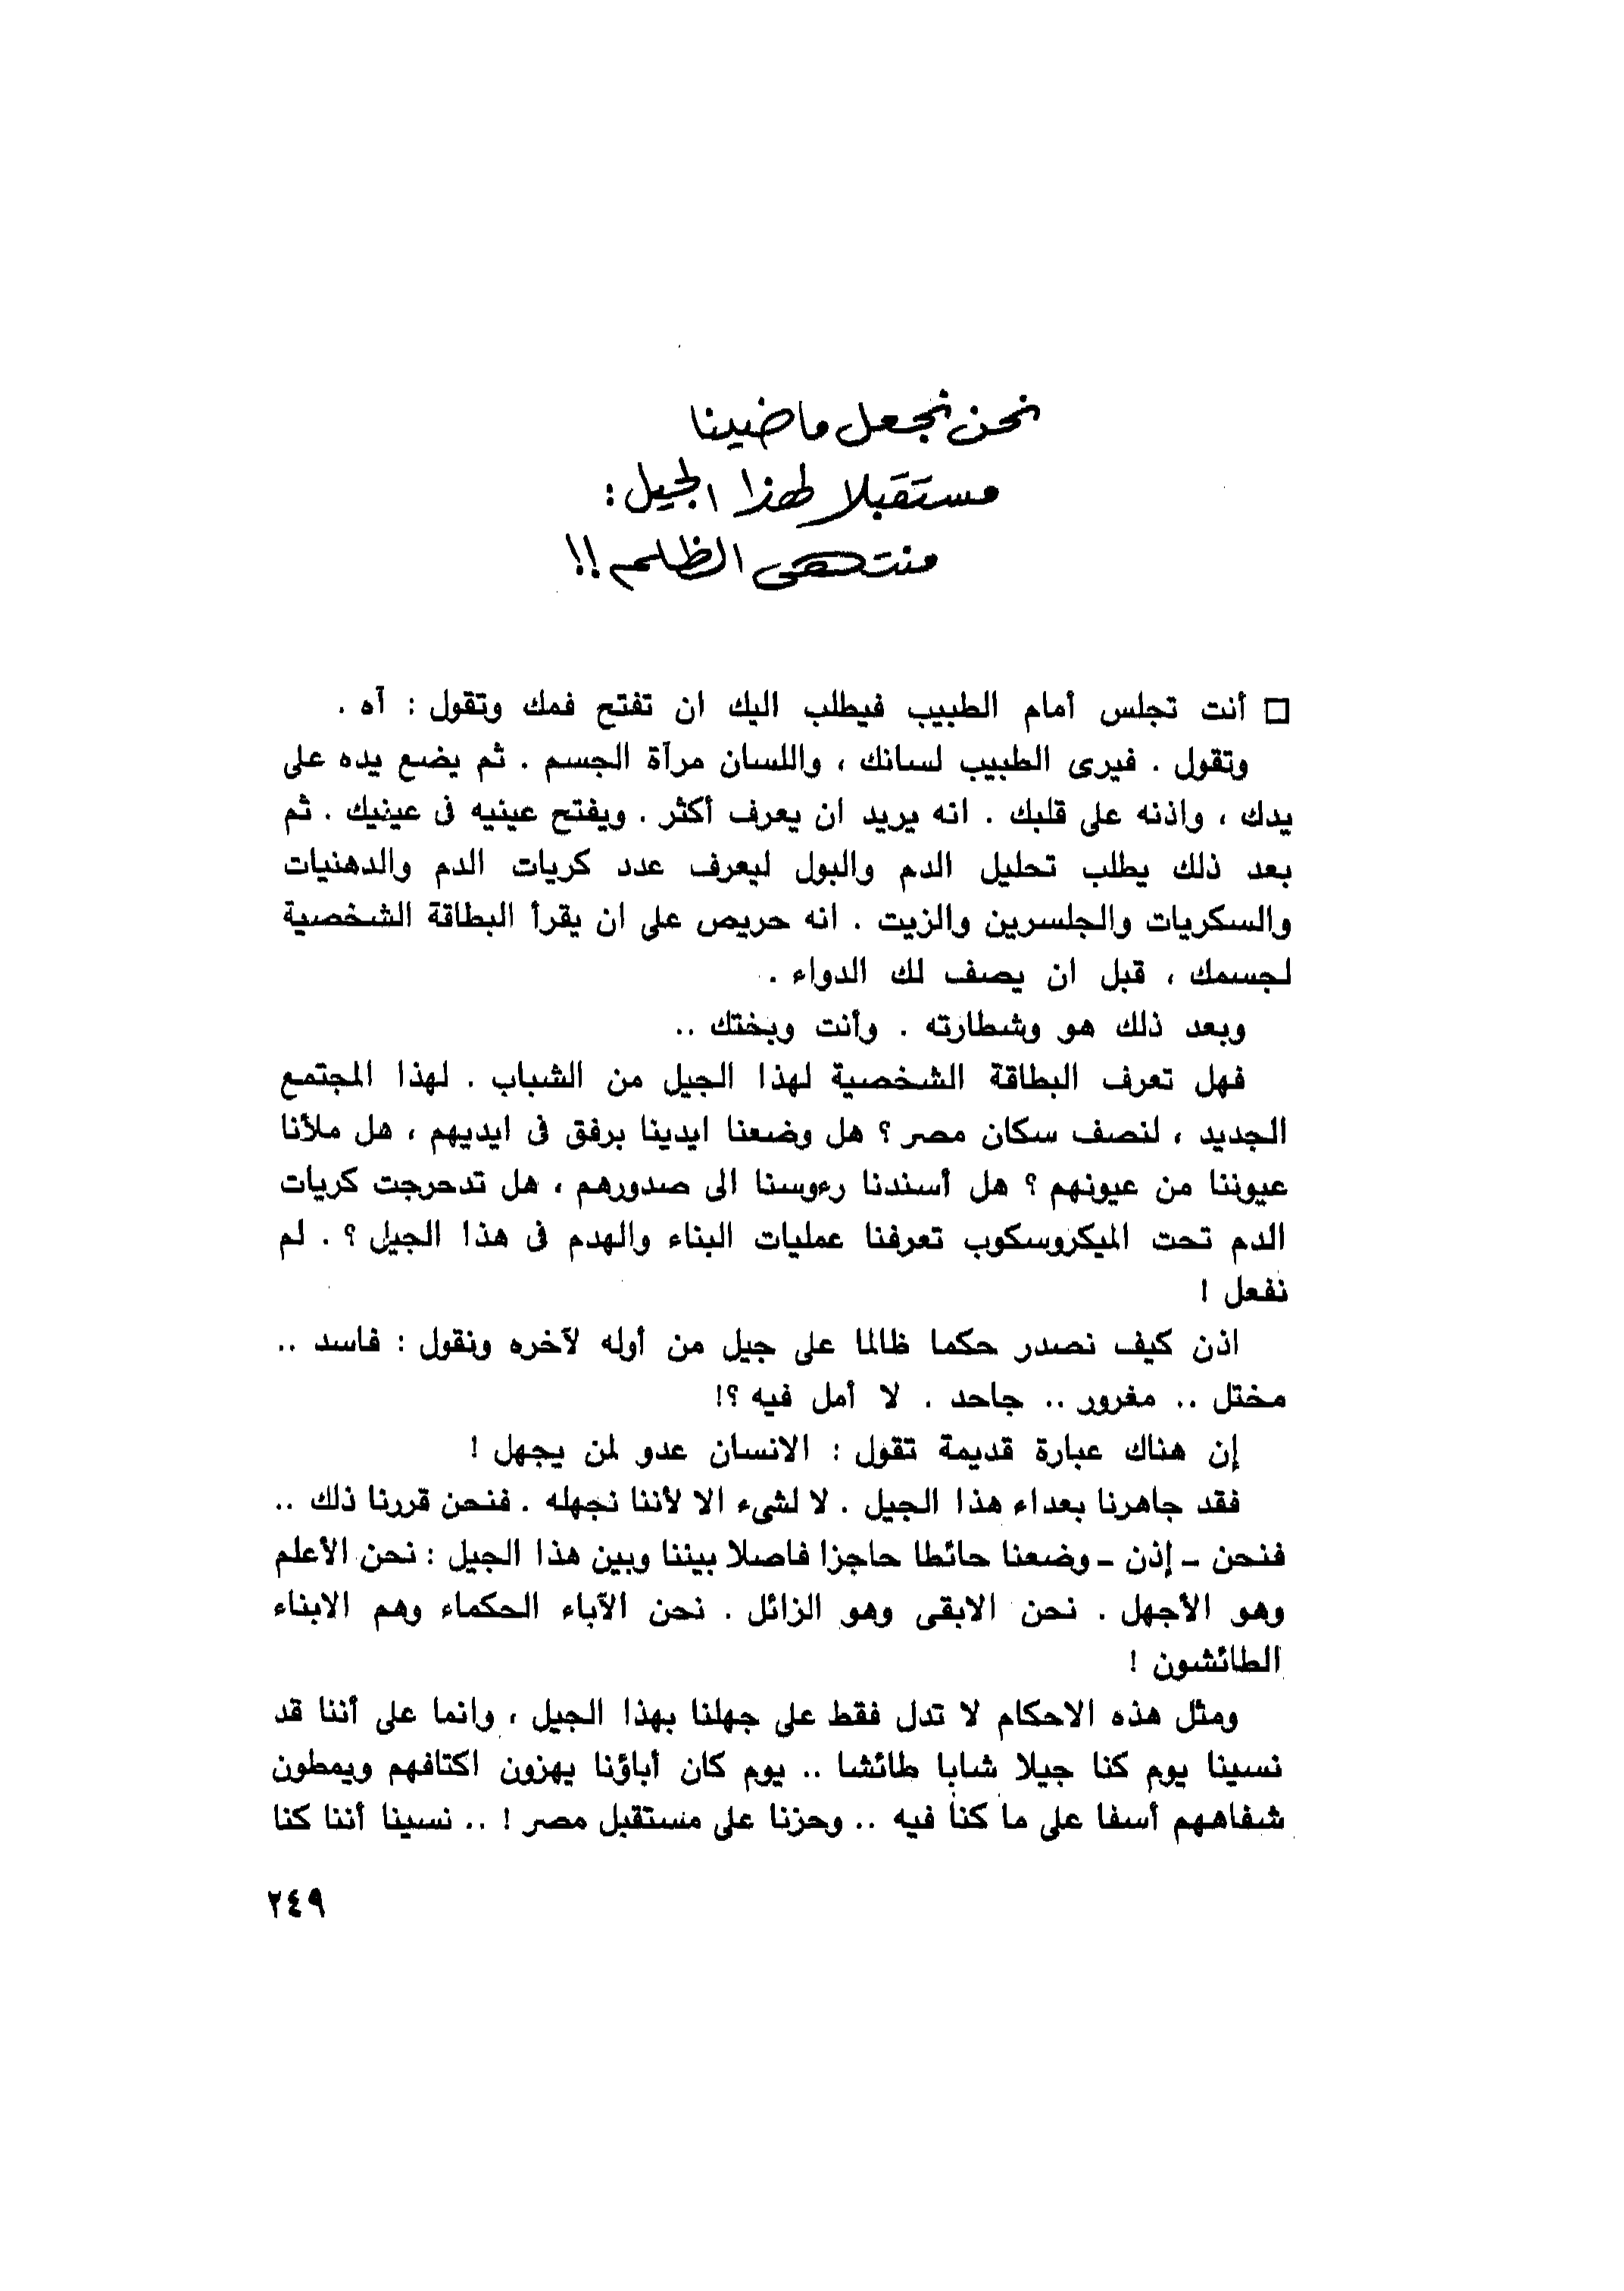 نحن نجعل ماضينا
مستقبلا لهذا الجيل :
منتهى الظلم !!
□ أنت تجلس أمام الطبيب فيطلب اليك ان تفتح فمك وتقول : آه .
وتقول . فيرى الطبيب لسانك ، واللسان مرآة الجسم . ثم يضع يده على
يدك ، واذنه على قلبك . انه يريد ان يعرف أكثر . ويفتح عينيه فى عينيك . ثم
بعد ذلك يطلب تحليل الدم والبول ليعرف عدد كريات الدم والدهنيات
والسكريات والجلسرين والزيت . انه حريص على ان يقرأ البطاقة الشخصية
لجسمك ، قبل ان يصف لك الدواء .
وبعد ذلك هو وشطارته . وأنت وبختك ..
فهل تعرف البطاقة الشخصية لهذا الجيل من الشباب . لهذا المجتمع
الجديد ، لنصف سكان مصر ؟ هل وضعنا ايدينا برفق فى ايديهم ، هل ملأنا
عيوننا من عيونهم ؟ هل أسندنا رءوسنا الى صدورهم ، هل تدحرجت كريات
الدم تحت الميكروسكوب تعرفنا عمليات البناء والهدم فى هذا الجيل ؟ . لم
نفعل !
اذن كيف نصدر حكما ظالما على جيل من أوله لآخره ونقول : فاسد ..
مختل .. مغرور .. جاحد . لا أمل فيه ؟!
إن هناك عبارة قديمة تقول : الانسان عدو لمن يجهل !
فقد جاهرنا بعداء هذا الجيل . لا لشىء الا لأننا نجهله . فنحن قررنا ذلك ..
فنحن ـ إذن ـ وضعنا حائطا حاجزا فاصلا بيننا وبين هذا الجيل : نحن الأعلم
وهو الأجهل . نحن الابقى وهو الزائل . نحن الآباء الحكماء وهم الابناء
الطائشون !
ومثل هذه الاحكام لا تدل فقط على جهلنا بهذا الجيل ، وانما على أننا قد
نسينا يوم كنا جيلا شابا طائشا .. يوم كان أباؤنا يهزون اكتافهم ويمطون
شفاههم أسفا على ما كنا فيه .. وحزنا على مستقبل مصر ! .. نسينا أننا كنا
٢٤٩